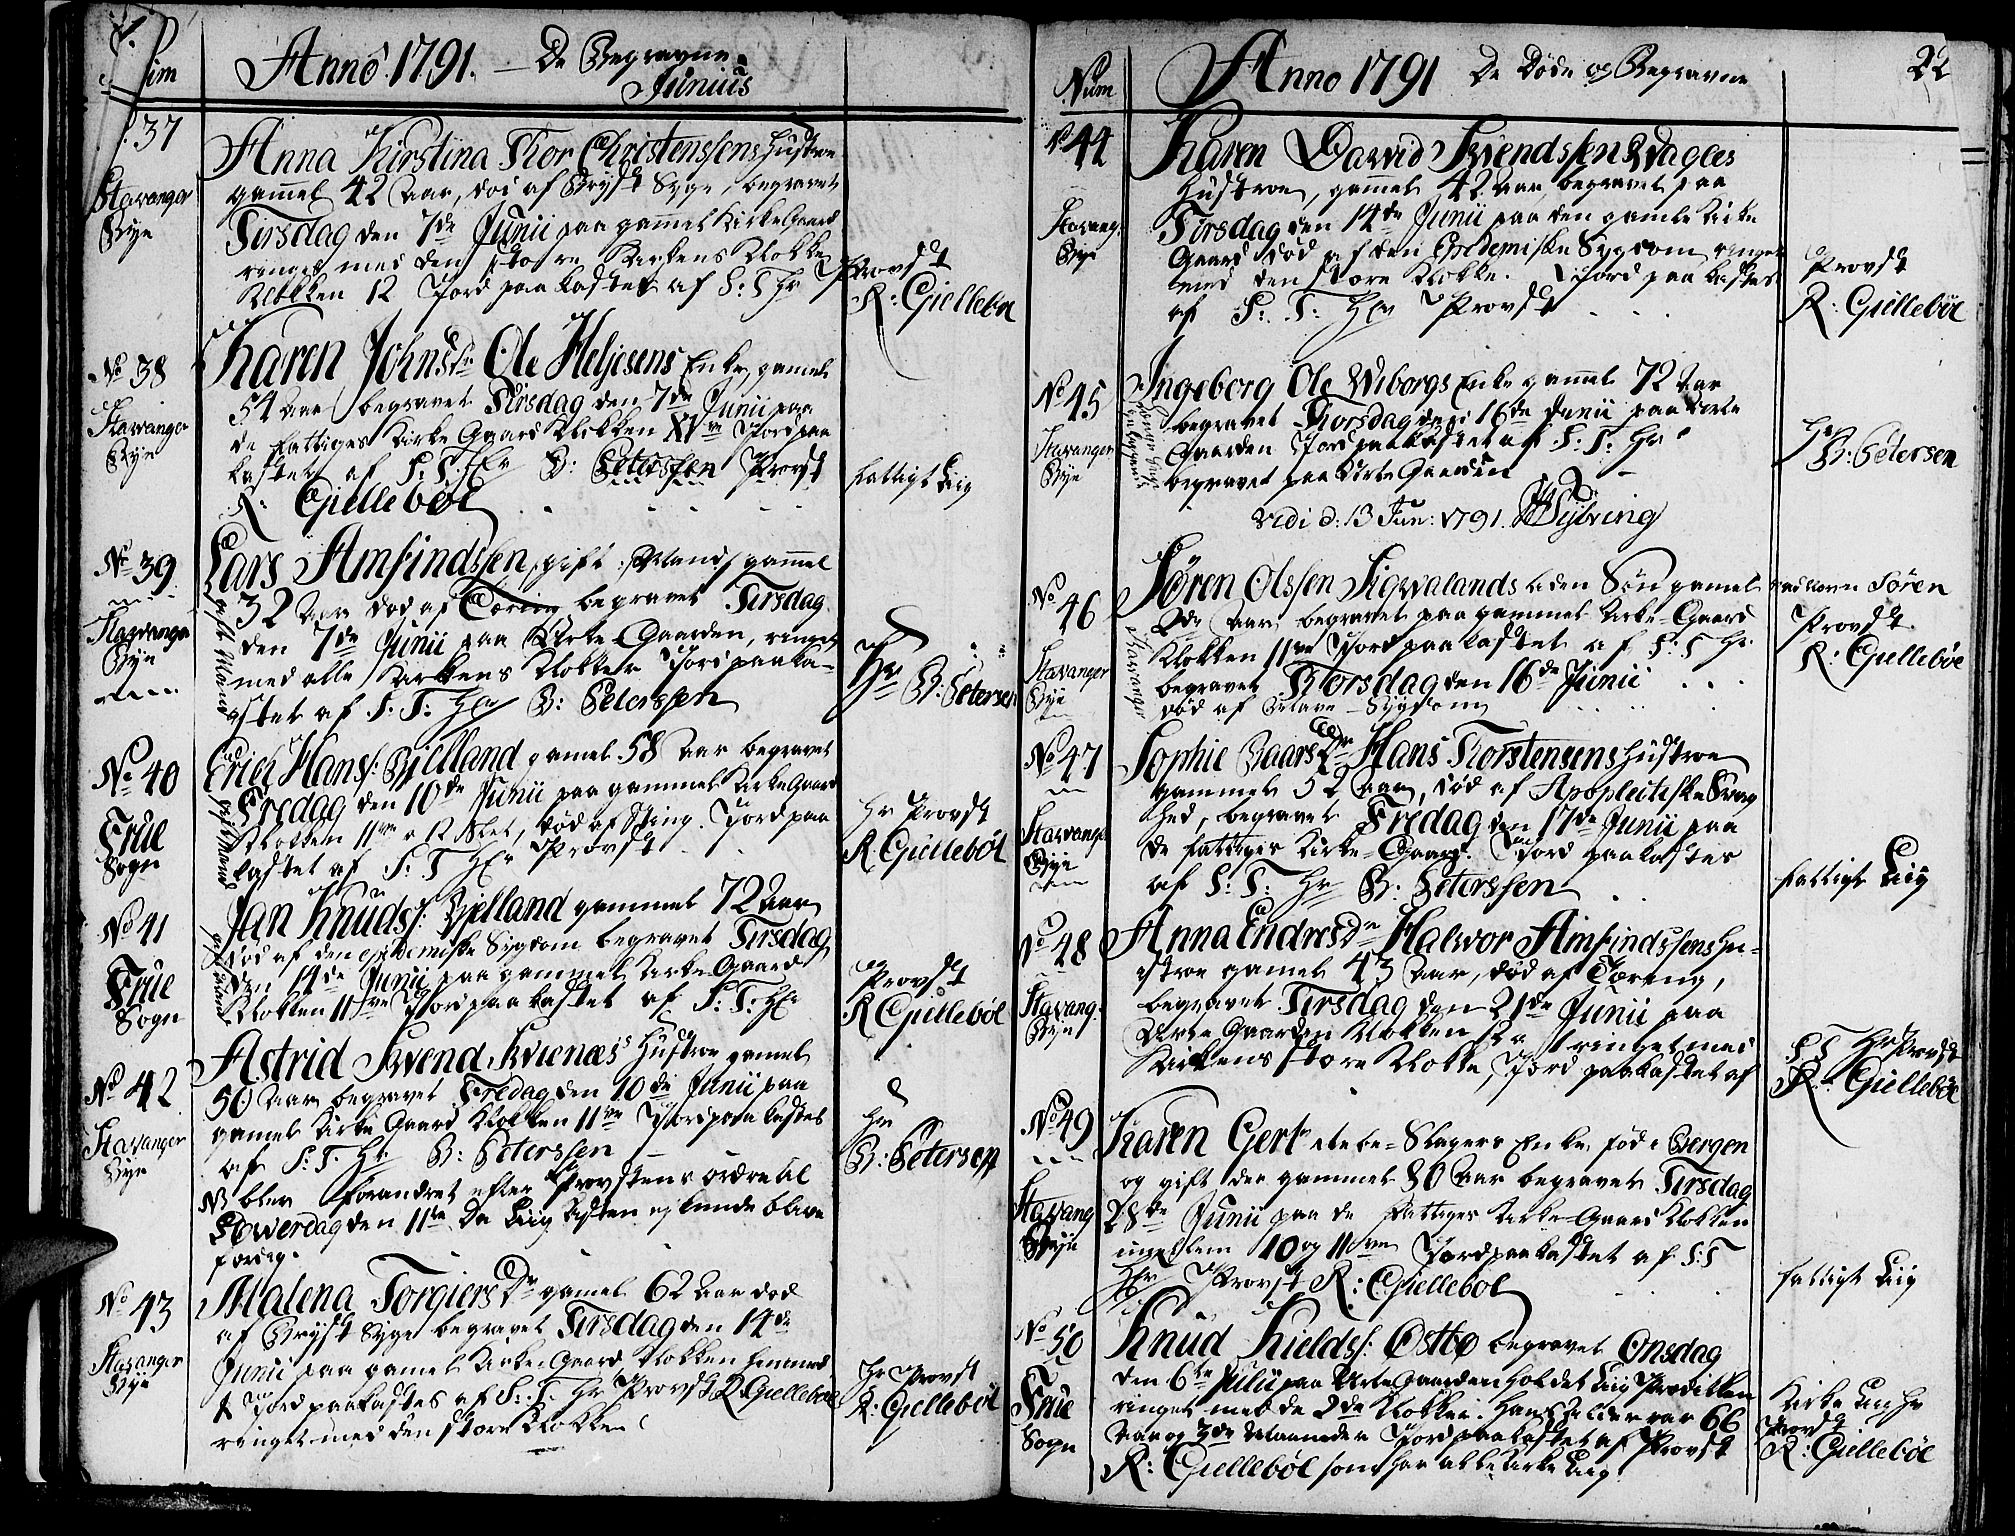 Num
Anno 1791. — De Begravne
Junius
37
Stavanger
Bye
Anna Kirstina Thor Christenssens Hustroe
gammel 42 Aar, død af Bryst Syge, begravet
Tirsdag den 7de Junii paa gammel Kirke Gaard
ringet med den store Kirkens Klokke
Klokken 12 Jord paa kastet af S: T Hr Provst
R: Gjellebøl
No 38
Stavanger
Bye
Karen Johnsdr Ole Heljesens Enke, gamel
54 Aar begravet Tirsdag den 7de Junii paa
de fattiges Kirke Gaard Klokken XI ve Jord paa
kastet af S: T. Hr B: Peterssen Provst
R: Gjellebøl
fattigt Liig
No 39
Stavanger
Bye
Lars Amfindssen, gift Mand, gammel
gift Mand
32 Aar død af Tæring begravet Tirsdag
den 7de Junii paa Kirke Gaarden, ringet
med alle Kirkens Klokker Jord paaka-
stet af S: T: Hr B: Peterssen
Hr B: Petersen
No 40
Frue
Sogn
Erich Hanss: Bjelland gamel 58 Aar begravet
gift Mand
Fredag den 10de Junii paa gammel Kirke Gaard
Klokken 11ve a 12 Slet, død af Sting. Jord paa
kastet af S: T Hr Provst
Hr Provst
R Gjellebøl
No 41
Frue
Sogn
Jan Knuds: Bjelland gammel 72 Aar
gift Mand
død af den epidemiske Sygdom begravet Tirsdag
den 14de Junii paa gammel Kirke Gaard
Klokken 11ve Jord paa kastet af S: T: Hr
Provst
R Gjellebøl
No 42
Stavanger
Bye
Astrid Svend Kvienæs's Hustroe gamel
50 Aar begravet Fredag den 10de Junii paa
gamel Kirke Gaard Klokken 11ve Jord paa kastet
af S: T Hr B: Peterssen
Hr
B: Petersen
NB blev forandret efter Provstens ordre til
Løwerdag den 11te Da Liig Kisten ej kunde blive
færdig.
No 43
Stavanger
Bye
Malena Torgiers Dr gamel 62 Aar død
af Bryst Syge begravet Tirsdag den 14de
Junii paa gamel Kirke Gaard, Klokken
Jord paakastes af S: T: Hr Provst R Gjellebøl
ringet med den store Klokken
Hr Provst
R: Gjellebøl
Num
Anno 1791 De Døde og Begravne
22
No 44
Stavang:
Bye
Karen David Svendssen Vagles
Hustroe, gammel 42 Aar, begravet paa
Tirsdag den 14de Junii paa den gamle Kirke
Gaard død af den Epidemiske Sygdom, ringet
med den store Klokke. Jord paa kastes
af S: T: Hr Provst
Provst
R: Gjellebøl
No 45
Stavanger
Bye
Ingeborg Ole Wiborgs Enke gammel 72 Aar
begravet Torsdag den 16de Junii paa Kirke
Gaarden Jord paakastet af S: T: Hr
begravet paa Kirke Gaarden
Hr
B: Petersen
Vidi d: 13 Jun: 1791.
No 46
Stavanger
Bye
Søren Olssen Sigwalands liden Søn gamel
Stavanger
2de Aar, begravet paa gammel Kirke-Gaard
Klokken 11ve Jord paakastet af S: T Hr
begravet Torsdag den 16de Junii
død af Sygdom
ved Navn Søren
Provst
R: Gjellebøl
No 47
Stavang:
Bye
Sophie Baars Dr Hans Torstensens Hustroe
gammel 52 Aar, død af Apopleitiske Svag
hed, begravet Fredag den 17de Junii paa
de fattiges Kirke-Gaard. Jord paakastes
af S: T: Hr B: Peterssen
fattigt Liig
No 48
Stavang:
Bye
Anna Endres Dr Halvor Amfindssens Hu-
stroe gamel 43 Aar, død af Tæring,
begravet Tirsdag den 21de Junii paa
Kirke Gaarden Klokken 12 ringet med
Kirkens store Klokke, Jord paakastet af
S T Hr Provst
R: Gjellebøl
No 49
Stavang
Bye
Karen Gert Slagers Enke, fød i Bergen
og gift der gammel 80 Aar begravet Tirsdag
28de Junii paa de Fattiges Kirke-Gaard Klokken
imellem 10 og 11ve Jord paakastet af S: T
Hr Provst R: Gjellebøl
fattigt Liig
No 50
Frue
Sogn
Knud Kields: Østbø begravet Onsdag
den 6te Julii paa Kirke Gaarden holdet Liig Prædiken
ringet med de 2de Klokker. Hans alder var 66
Aar og 3de Maaneder Jord paakastet af Provst
R: Gjellebøl som har Kirke Liig
Kirke Liig Hr
Provst
R: Gjellebøl